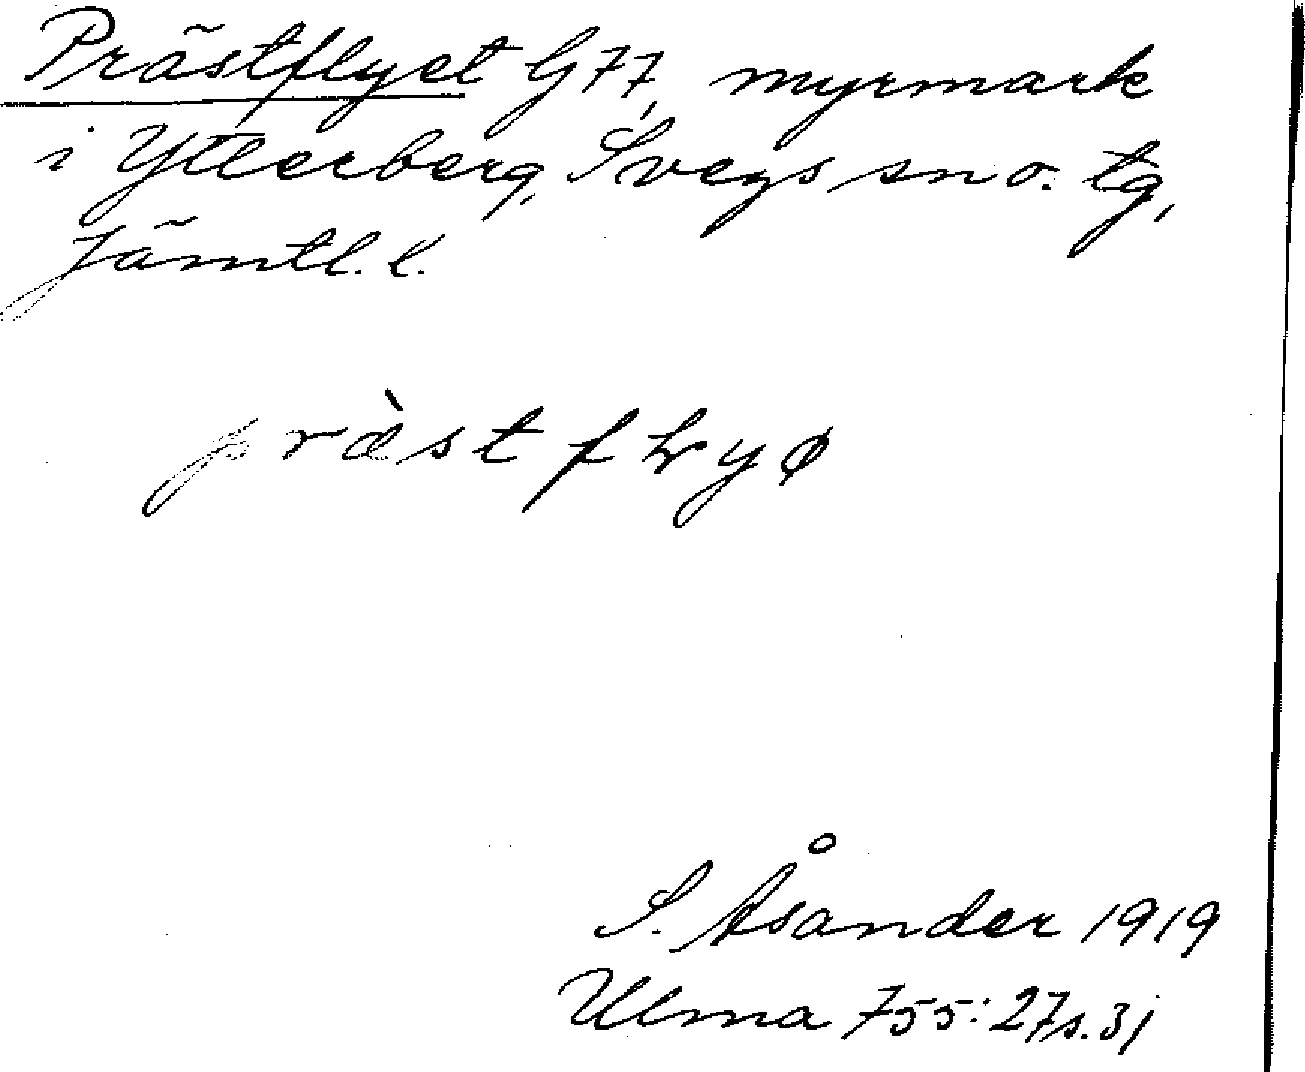 Prästflyet G77, myrmark
i Ytterberg, Svegs sn o. tg,
Jämtl. l.
præ̀stflyø
S. Åsander 1919
Ulma 755:27 s. 31